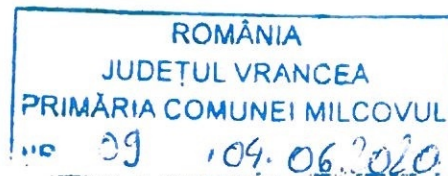 ROMÂNIA
JUDEȚUL VRANCEA
PRIMĂRIA COMUNEI MILCOVUL
09 04.06.2020